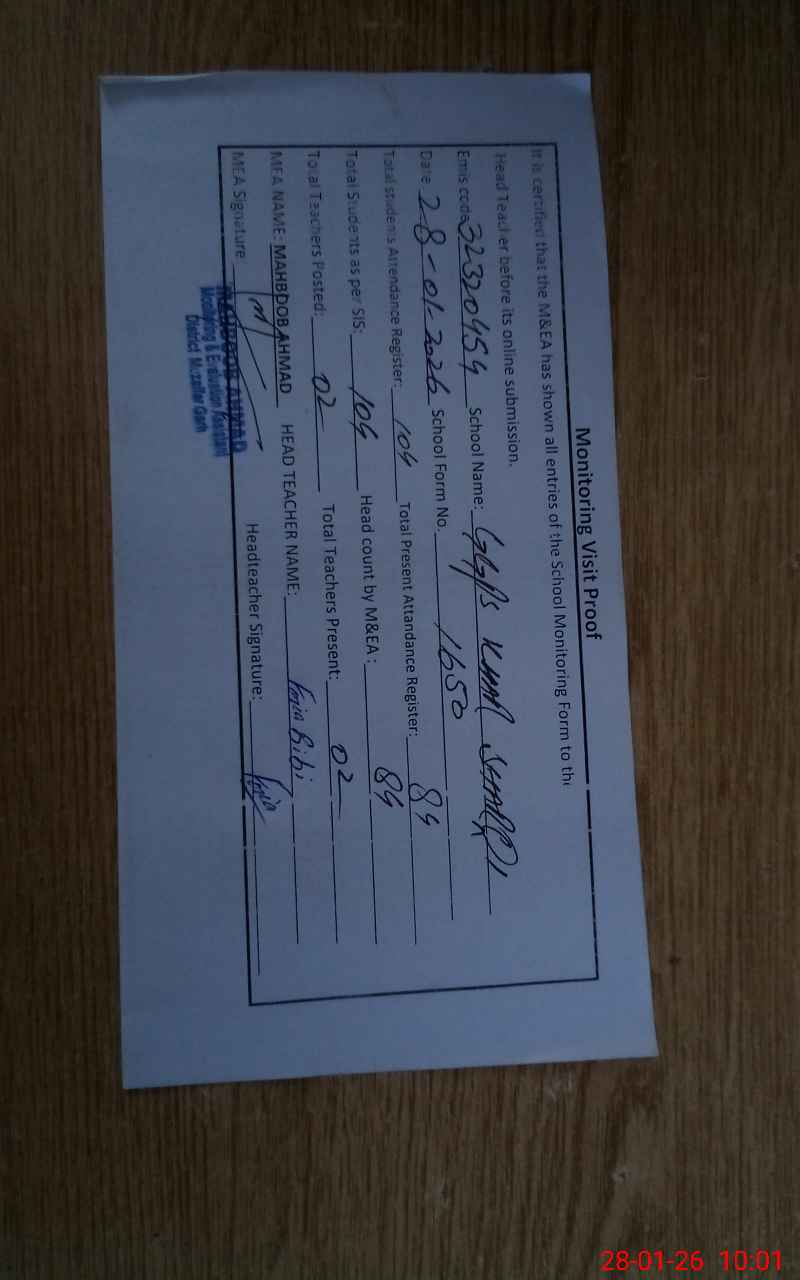 Monitoring Visit Proof
It is certified that the M&EA has shown all entries of the School Monitoring Form to the
Head Teacher before its online submission.
Emis code 32320454 School Name: GGPS
Date 28-01-2026 School Form No. 1650
Total students Attendance Register: 104 Total Present Attandance Register: 84
Total Students as per SIS: 104 Head count by M&EA: 84
Total Teachers Posted: 02 Total Teachers Present: 02
MEA NAME: MAHBOOB AHMAD HEAD TEACHER NAME: Fozia Bibi
MEA Signature Headteacher Signature: Fozia
MAHBOOB AHMAD
Monitoring & Evaluation Assistant
District Muzaffar Garh
28-01-26 10:01